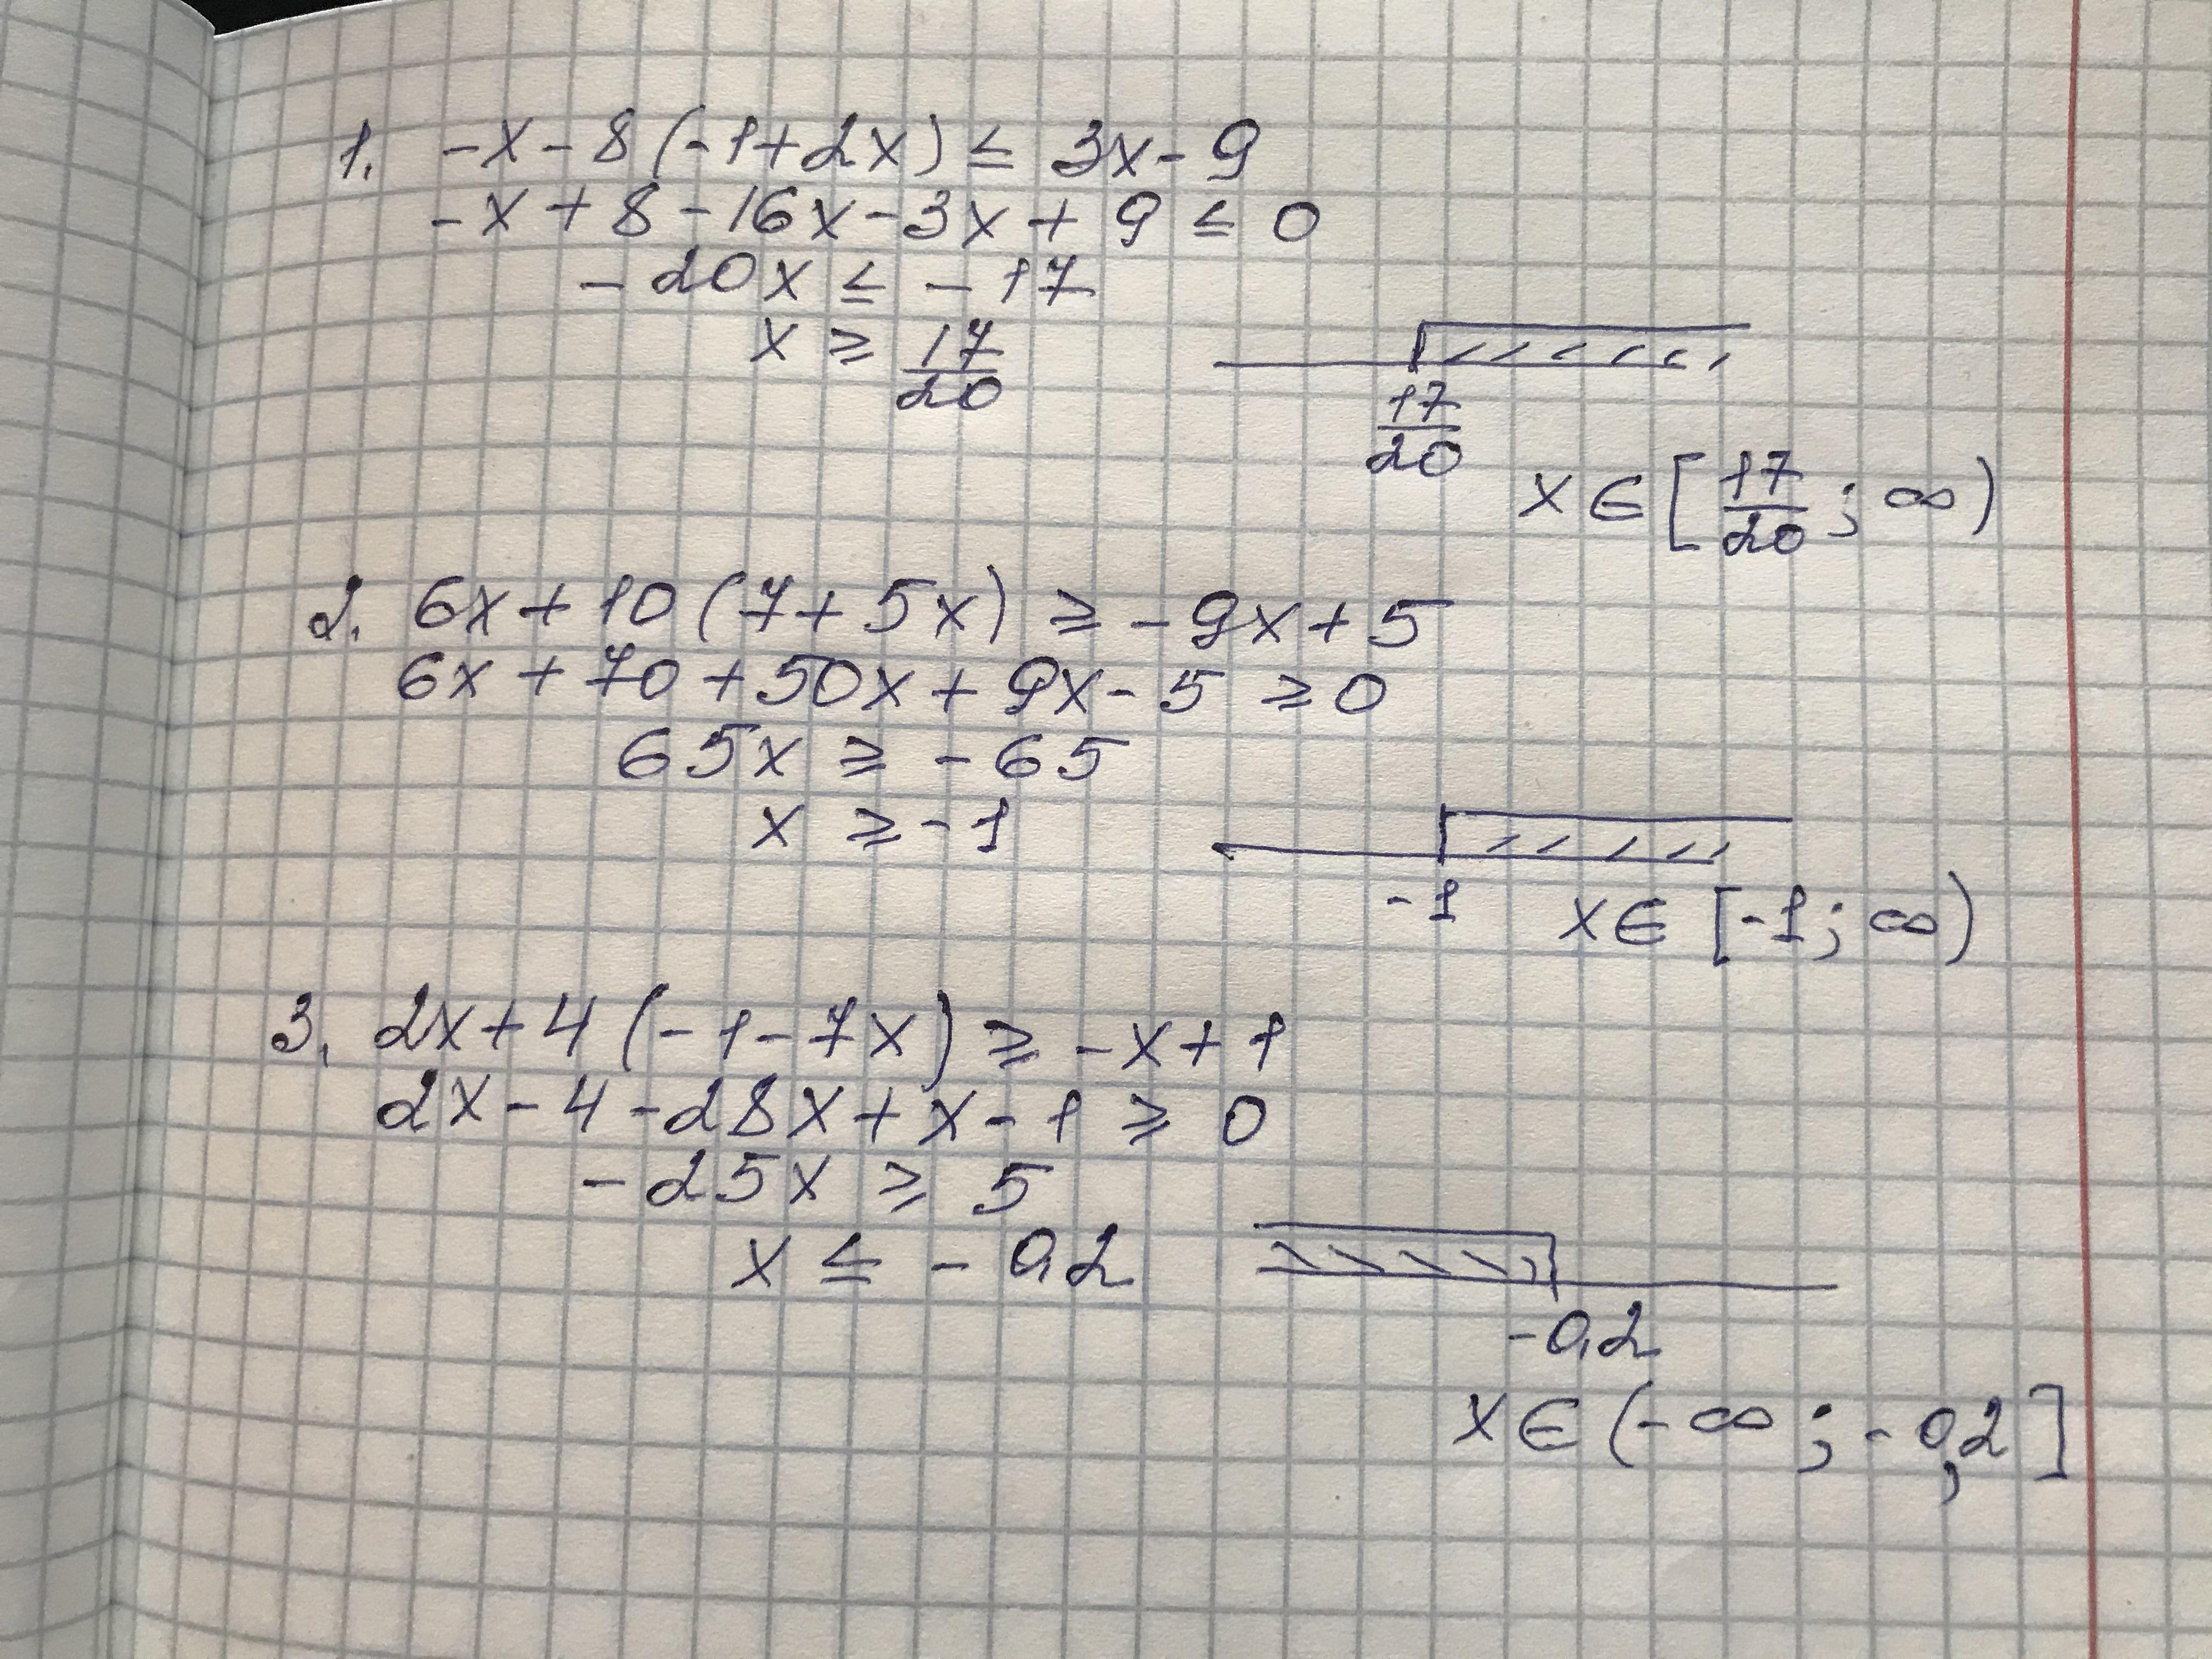 1. -x-8(-1+2x) ≤ 3x-9
-x+8-16x-3x+9 ≤ 0
-20x ≤ -17
x ≥ 17/20
17/20
x ∈ [17/20; ∞)
2. 6x+10(7+5x) ≥ -9x+5
6x+70+50x+9x-5 ≥ 0
65x ≥ -65
x ≥ -1
-1 x ∈ [-1; ∞)
3. 2x+4(-1-7x) ≥ -x+1
2x-4-28x+x-1 ≥ 0
-25x ≥ 5
x ≤ -0,2
-0,2
x ∈ (-∞; -0,2]